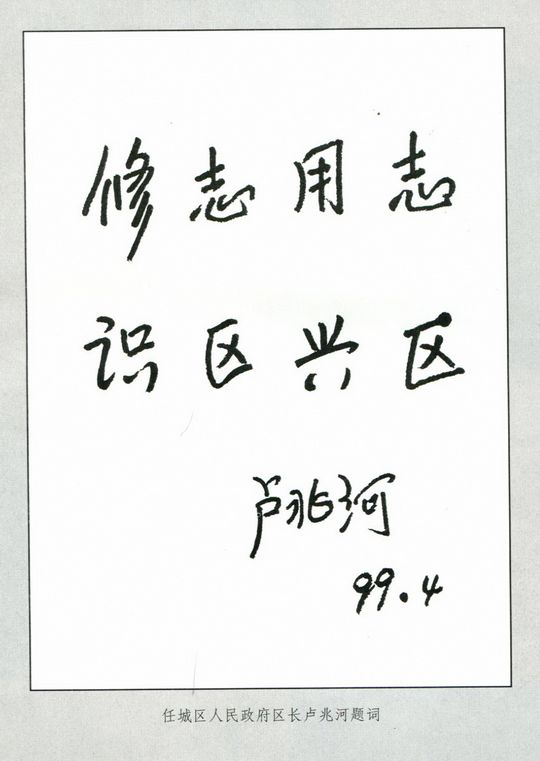 修志用志
识区兴区
卢兆河
99.4
任城区人民政府区长卢兆河题词